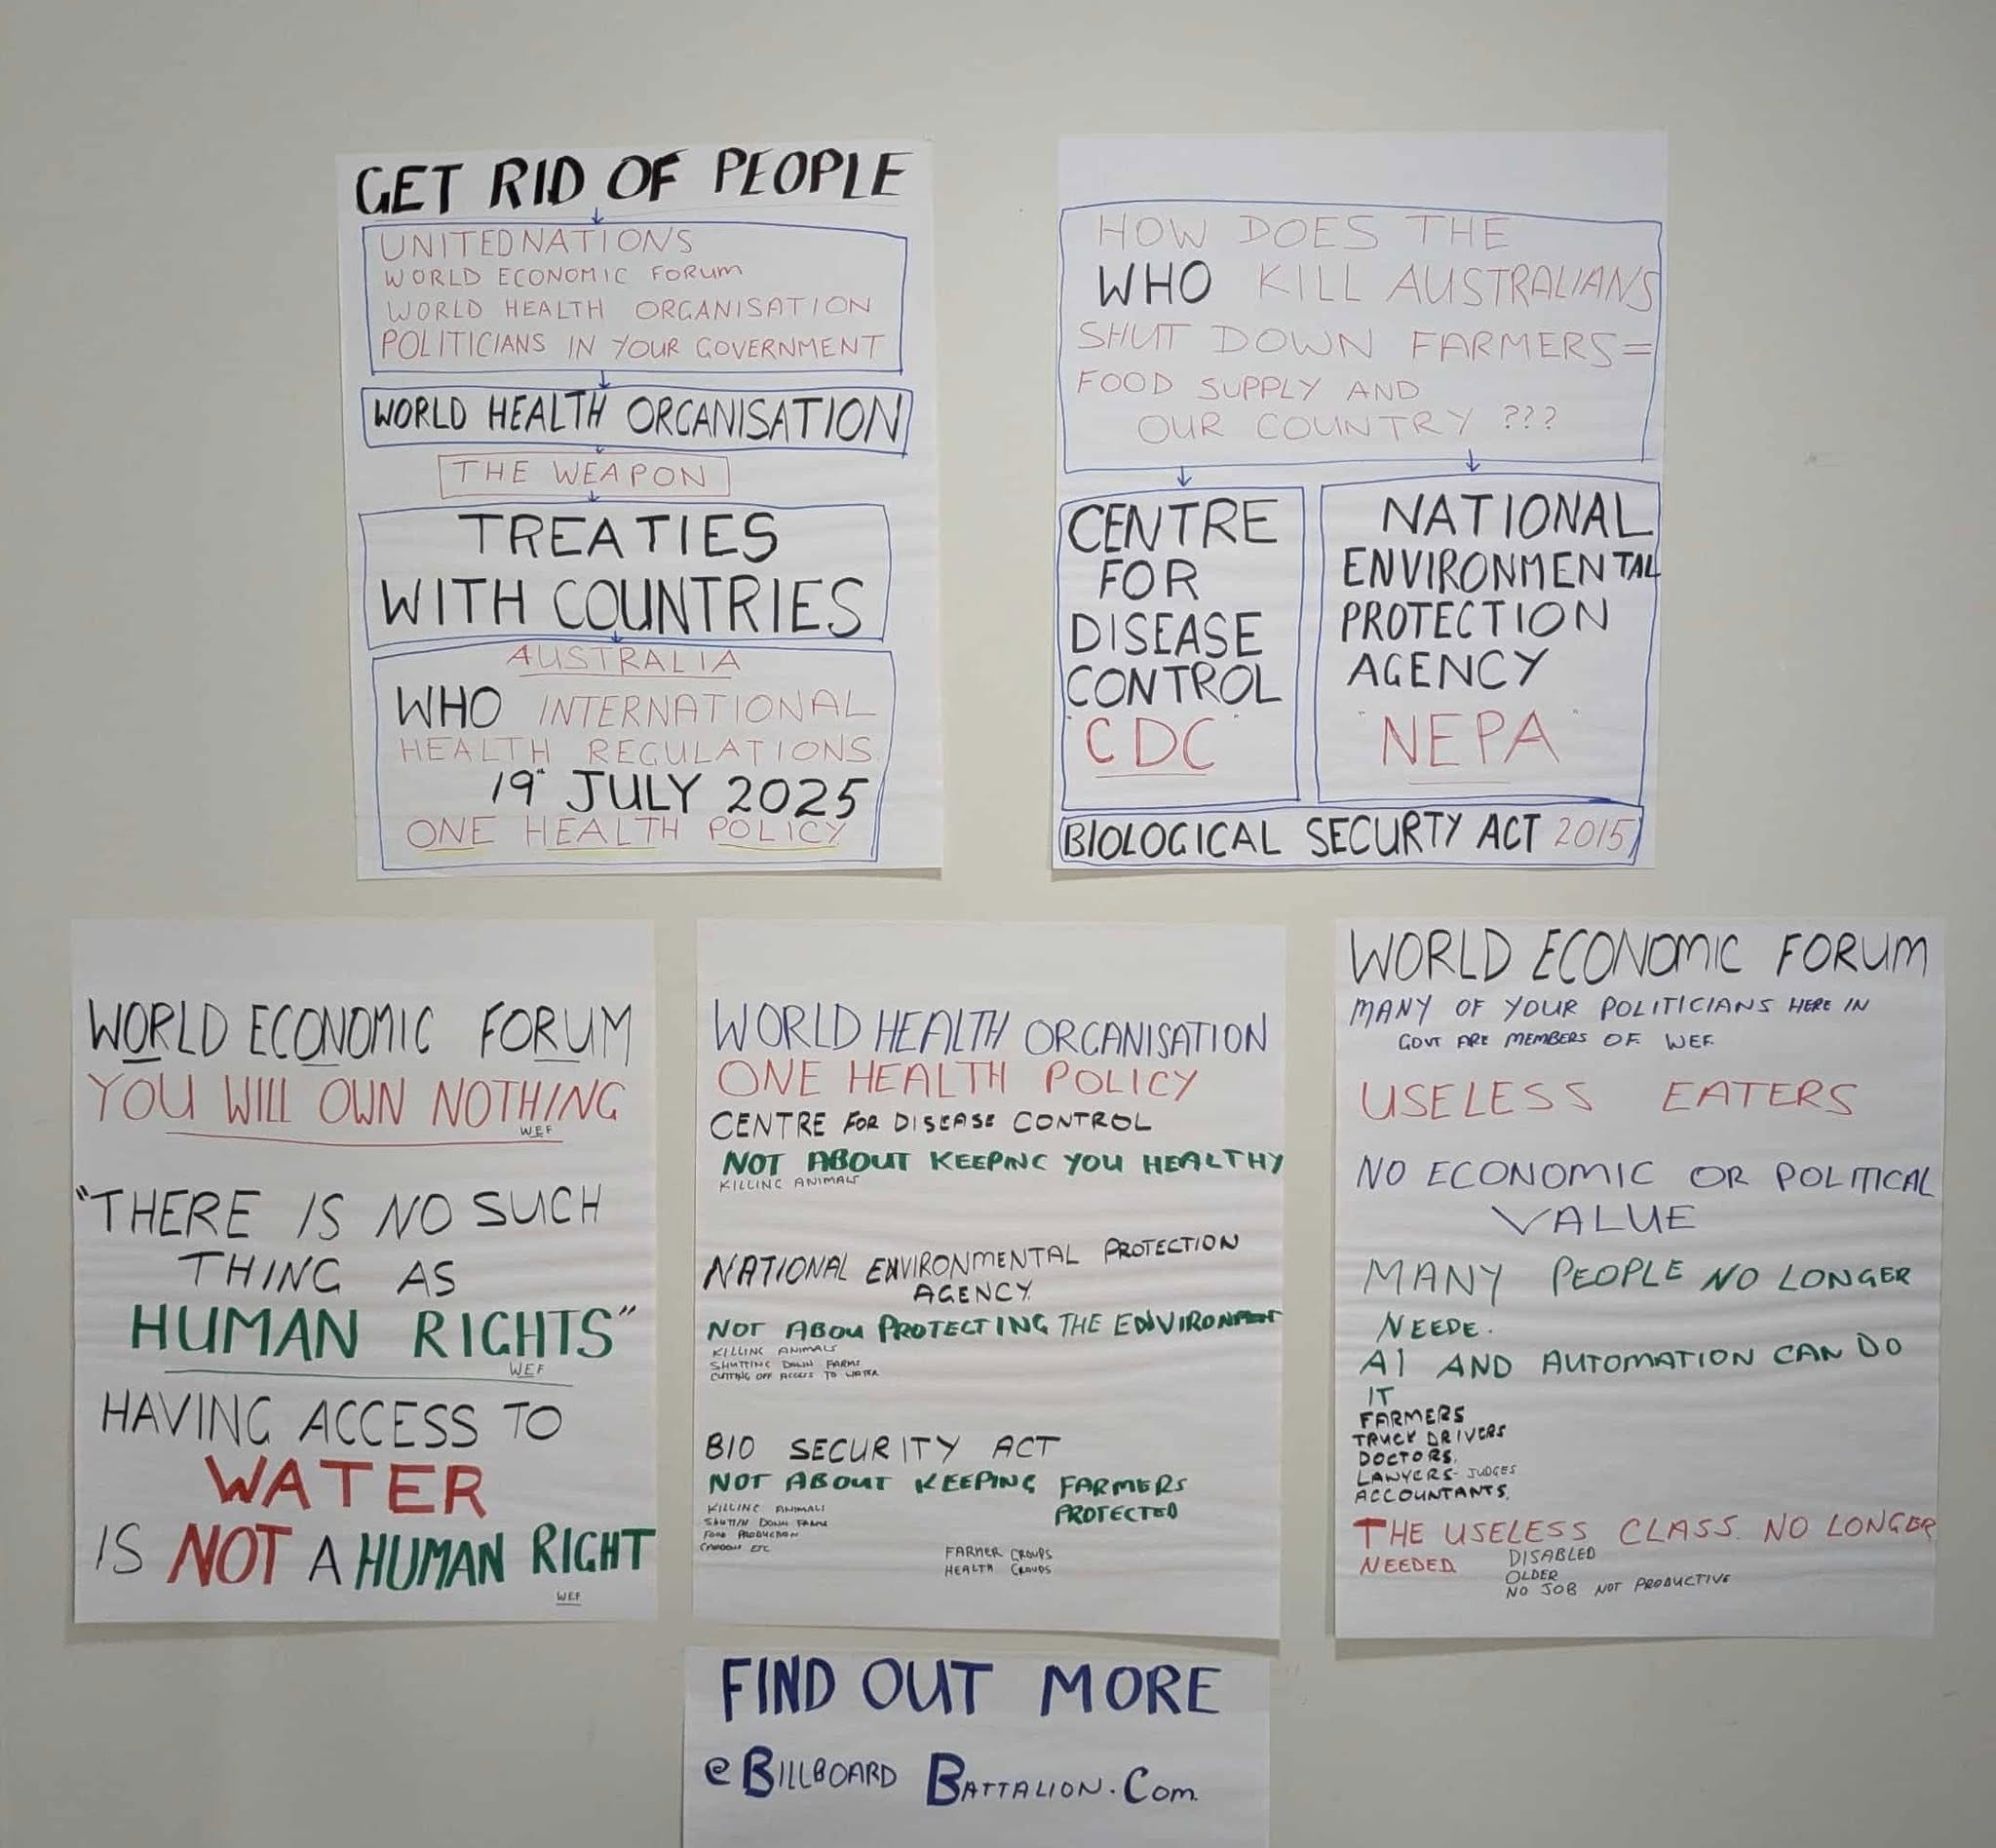 GET RID OF PEOPLE
UNITED NATIONS
WORLD ECONOMIC FORUM
WORLD HEALTH ORGANISATION
POLITICIANS IN YOUR GOVERNMENT
WORLD HEALTH ORGANISATION
THE WEAPON
TREATIES
WITH COUNTRIES
AUSTRALIA
WHO INTERNATIONAL
HEALTH REGULATIONS
19" JULY 2025
ONE HEALTH POLICY
HOW DOES THE
WHO KILL AUSTRALIANS
SHUT DOWN FARMERS=
FOOD SUPPLY AND
OUR COUNTRY ???
CENTRE
FOR
DISEASE
CONTROL
"CDC"
NATIONAL
ENVIRONMENTAL
PROTECTION
AGENCY
"NEPA"
BIOLOGICAL SECURTY ACT 2015
WORLD ECONOMIC FORUM
YOU WILL OWN NOTHING
WEF
"THERE IS NO SUCH
THING AS
HUMAN RIGHTS"
WEF
HAVING ACCESS TO
WATER
IS NOT A HUMAN RIGHT
WEF
WORLD HEALTH ORGANISATION
ONE HEALTH POLICY
CENTRE FOR DISEASE CONTROL
NOT ABOUT KEEPING YOU HEALTHY
KILLING ANIMALS
NATIONAL ENVIRONMENTAL PROTECTION
AGENCY.
NOT ABOU PROTECTING THE ENVIRONMENT
KILLING ANIMALS
SHUTTING DOWN FARMS
CUTTING OFF ACCESS TO WATER
BIO SECURITY ACT
NOT ABOUT KEEPING FARMERS
PROTECTED
KILLING ANIMALS
SHUTTIN DOWN FARMS
FOOD PRODUCTION
ETC
FARMER GROUPS
HEALTH GROUPS
WORLD ECONOMIC FORUM
MANY OF YOUR POLITICIANS HERE IN
GOVT ARE MEMBERS OF WEF.
USELESS EATERS
NO ECONOMIC OR POLITICAL
VALUE
MANY PEOPLE NO LONGER
NEEDE.
AI AND AUTOMATION CAN DO
IT
FARMERS
TRUCK DRIVERS
DOCTORS.
LAWYERS- JUDGES
ACCOUNTANTS.
THE USELESS CLASS. NO LONGER
NEEDED
DISABLED
OLDER
NO JOB NOT PRODUCTIVE
FIND OUT MORE
@BILLBOARD BATTALION.COM.